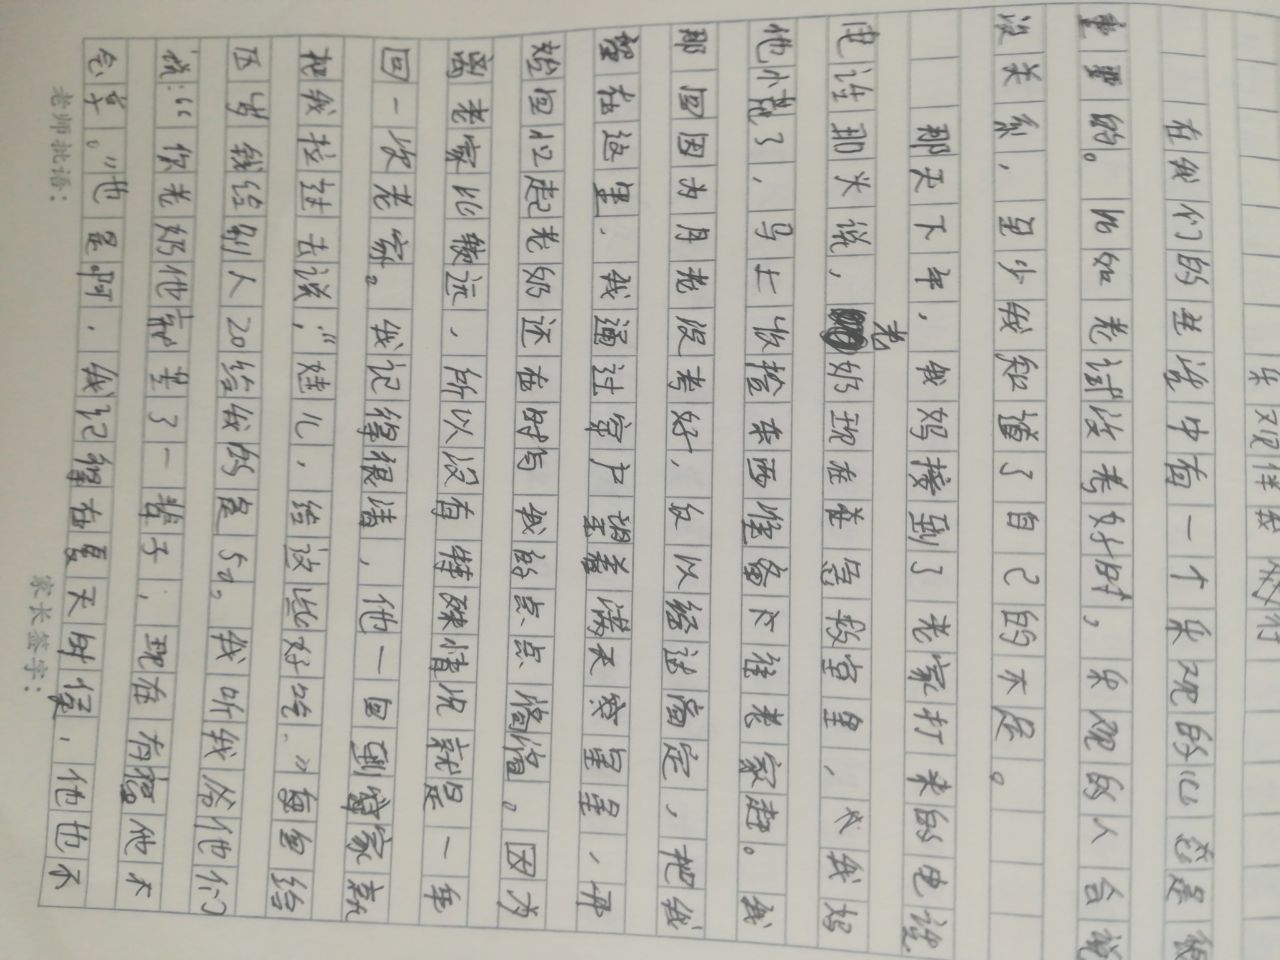 乐观伴我同行
在我们的生活中有一个乐观的心态是很
重要的。比如考试没考好时，乐观的人会说
没关系，至少我知道了自己的不足。
那天下午，我妈接到了老家打来的电话，
电话那头说，老奶现在在急救室里，大我妈
他小慌了，马上收拾东西准备人往老家赶。我
那回因为月考没考好，
留在这里。我通过窗户望着满天繁星星，开
始回忆起老奶还在时与我的点点滴滴。因为
离老家比较远，所以没有特殊情况就是一年
回一次老家。我记得很清，他一回到家就
把我拉过去说，“娃儿，给这些好吃。”每回给
压岁钱给别人20给我的是50。我听我爷他们
说：“你老奶他就苦了一辈子，现在有福他不
会享。”也是啊，我记得在夏天时候，他也不
老师批语：
家长签字：